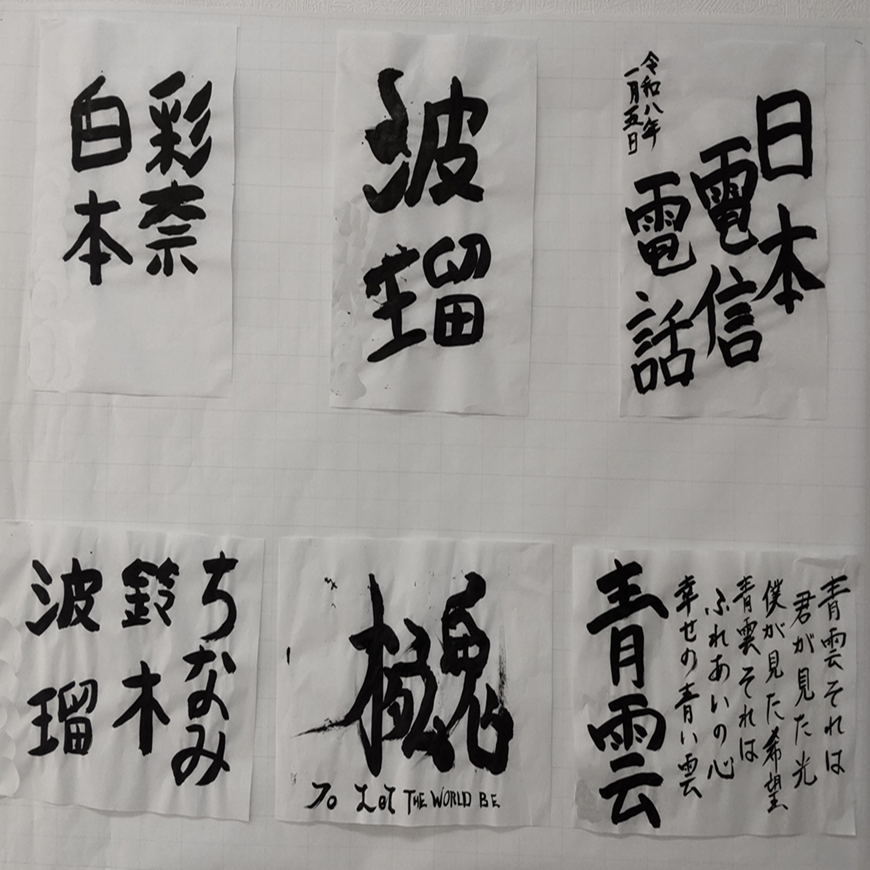 彩奈
白本
波瑠
日本
電信
電話
令和八年
一月五日
ちなみ
鈴木
波瑠
To Let THE WORLD BE
青雲それは
君が見た光
僕が見た希望
青雲それは
ふれあいの心
幸せの青い雲
青雲